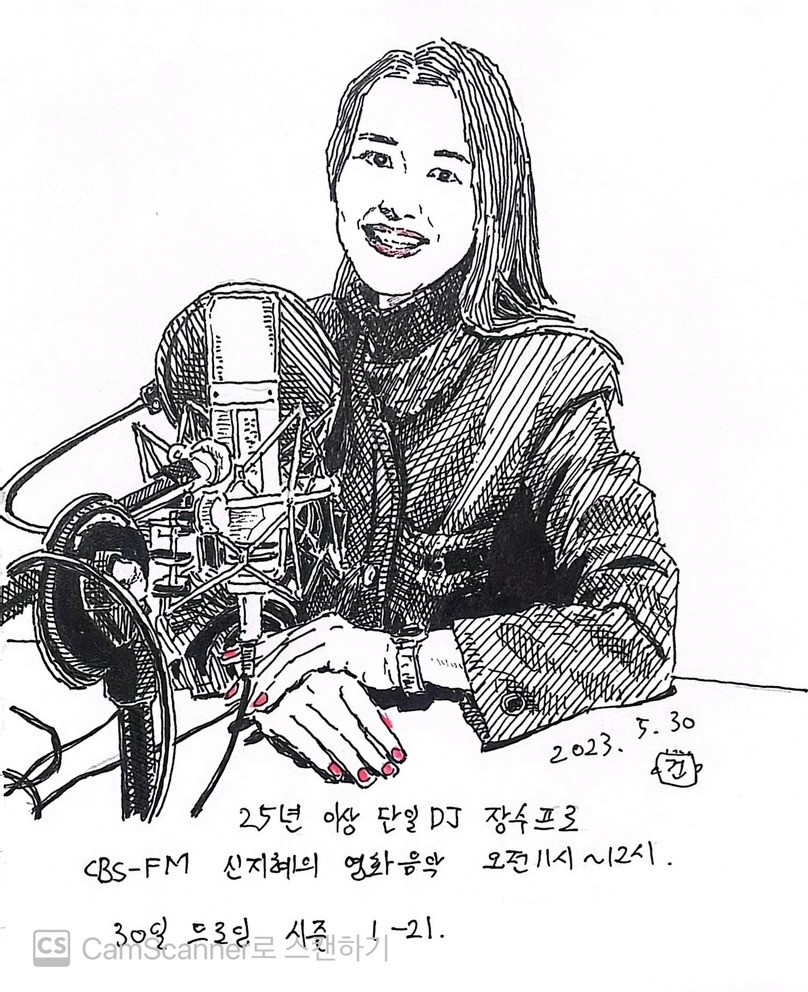 2023. 5. 30
건
25년 이상 단일 DJ 장수프로
CBS-FM 신지혜의 영화음악 오전11시~12시.
30일 드로잉 시즌 1-21.
CS CamScanner로 스캔하기